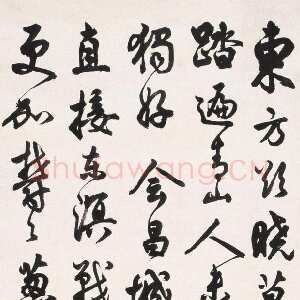 東方欲曉莫
踏遍青山人未
獨好 会昌城
直接东溟戰
更加鬱々蔥
Shufawang.CN